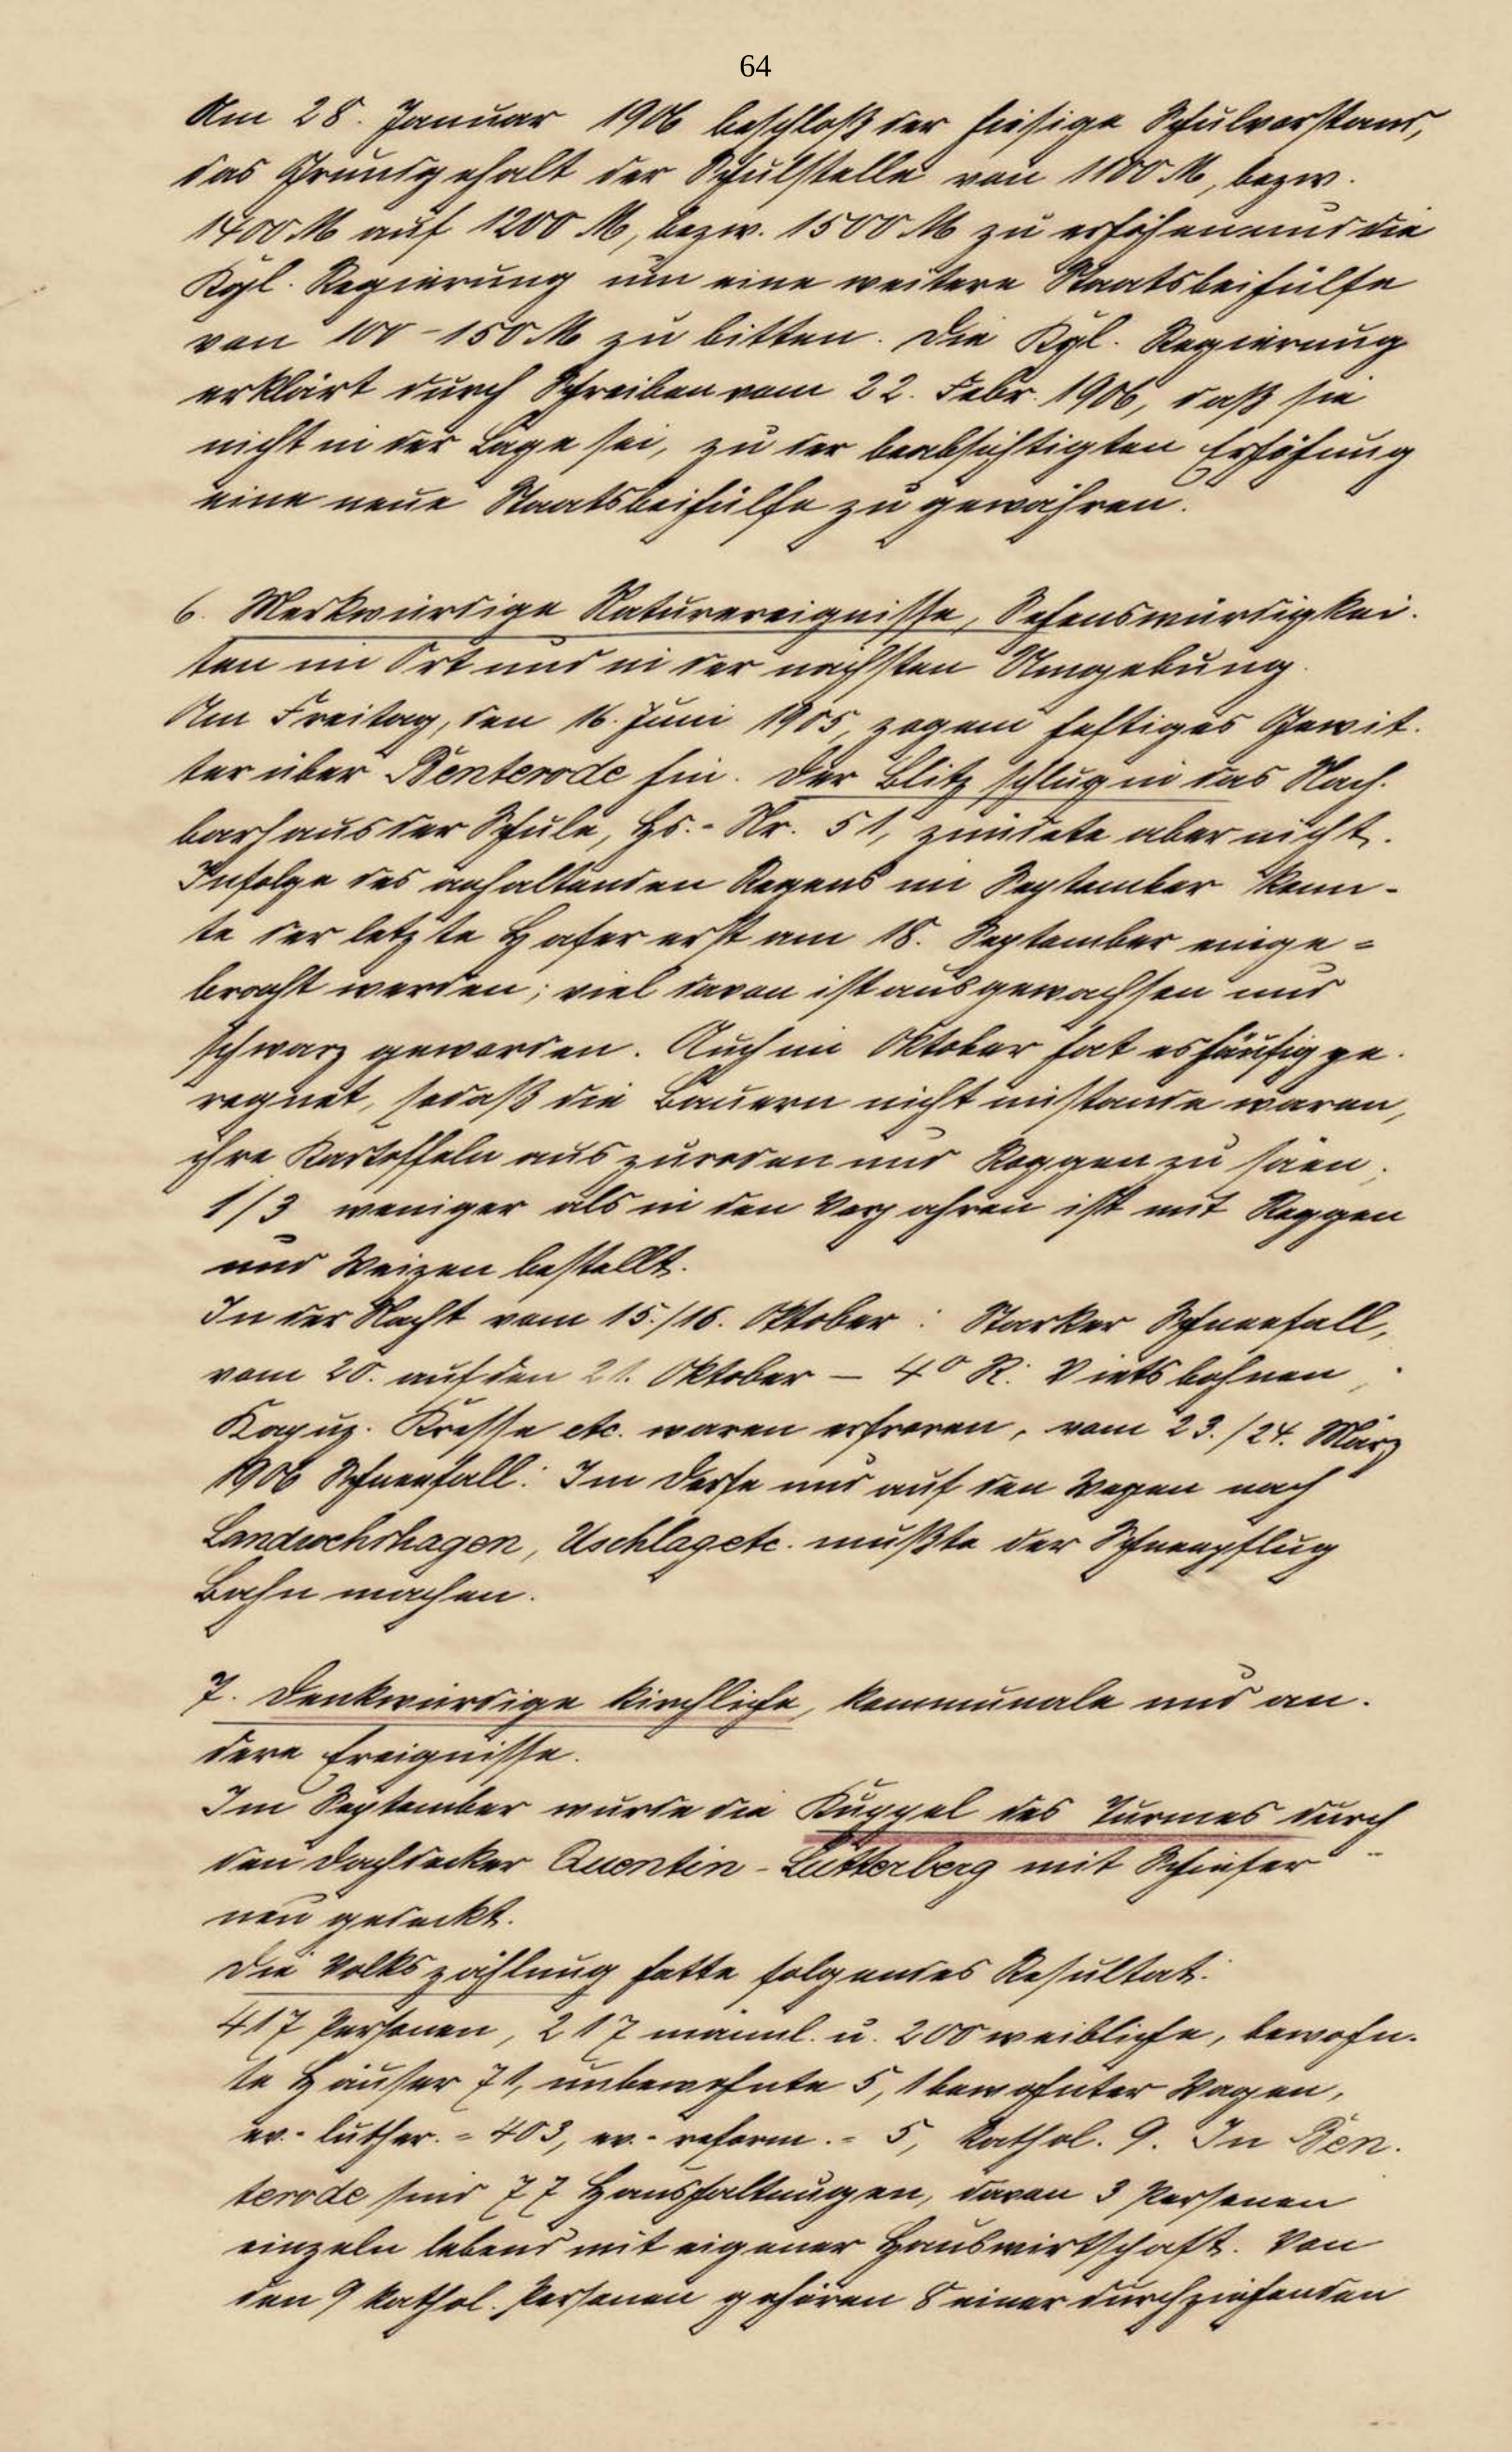 64
Am 28. Januar 1906 beschloß der hiesige Schulvorstand,
das Grundgehalt der Schulstelle von 1100 M, bezw.
1400 M auf 1200 M, bezw. 1500 M zu erhöhen und die
Kgl. Regierung um eine weitere Staatsbeihülfe
von 100-150 M zu bitten. Die Kgl. Regierung
erklärt durch Schreiben vom 22. Febr. 1906, daß sie
nicht in der Lage sei, zu der beabsichtigten Erhöhung
eine neue Staatsbeihülfe zu gewähren.
6. Merkwürdige Naturereignisse, Sehenswürdigkei-
ten im Ort und in der nächsten Umgebung.
Am Freitag, den 16. Juni 1905, zog ein heftiges Gewit-
ter über Benterode hin. Der Blitz schlug in das Nach-
barhaus der Schule, Hs.-Nr. 51, zündete aber nicht.
Infolge des anhaltenden Regens im September konn-
te der letzte Hafer erst am 18. September einge-
bracht werden; viel davon ist ausgewachsen und
schwarz geworden. Auch im Oktober hat es häufig ge-
regnet, sodaß die Bauern nicht imstande waren,
ihre Kartoffeln auszuroden und Roggen zu säen.
1/3 weniger als in den Vorjahren ist mit Roggen
und Weizen bestellt.
In der Nacht vom 15./16. Oktober: Starker Schneefall,
vom 20. auf den 21. Oktober - 4° R. Vietsbohnen,
Kapuz. Kresse etc. waren erfroren, vom 23./24. März
1906 Schneefall: Im Dorfe und auf den Wegen nach
Landwehrhagen, Uschlag etc. mußte der Schneepflug
Bahn machen.
7. Denkwürdige kirchliche, kommunale und an-
dere Ereignisse.
Im September wurde die Kuppel des Turmes durch
den Dachdecker Quentin-Lutterberg mit Schiefer
neu gedeckt.
Die Volkszählung hatte folgendes Resultat:
417 Personen, 217 männl. u. 200 weibliche, bewohn-
te Häuser 71, unbewohnte 5, 1 bewohnter Wagen,
ev.-luther. = 403, ev.-reform. = 5, kathol. 9. In Ben-
terode sind 77 Haushaltungen, davon 3 Personen
einzeln lebend mit eigener Hauswirtschaft. Von
den 9 kathol. Personen gehören 8 einer durchziehenden